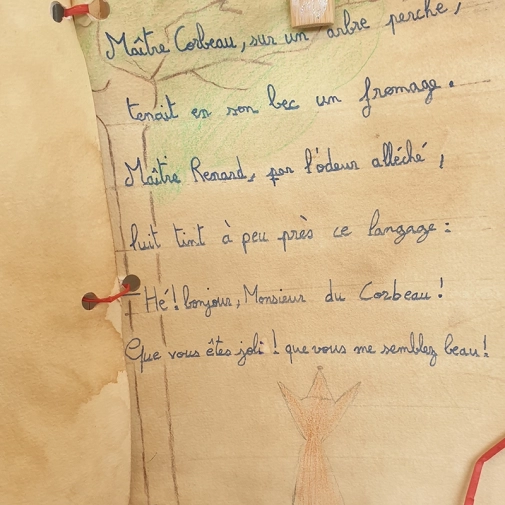 Maître Corbeau, sur un arbre perché,
tenait en son bec un fromage.
Maître Renard, par l'odeur alléché,
luit tint à peu près ce langage :
- Hé! bonjour, Monsieur du Corbeau!
Que vous êtes joli! que vous me semblez beau!